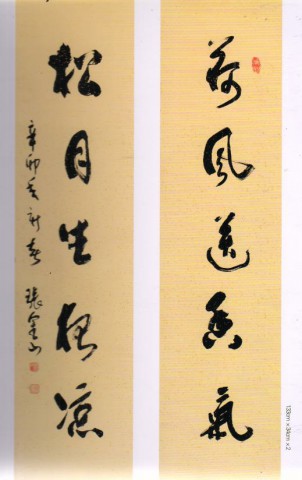 荷風送香氣
松月生夜涼
辛卯年新春 張金山
133cm×34cm×2